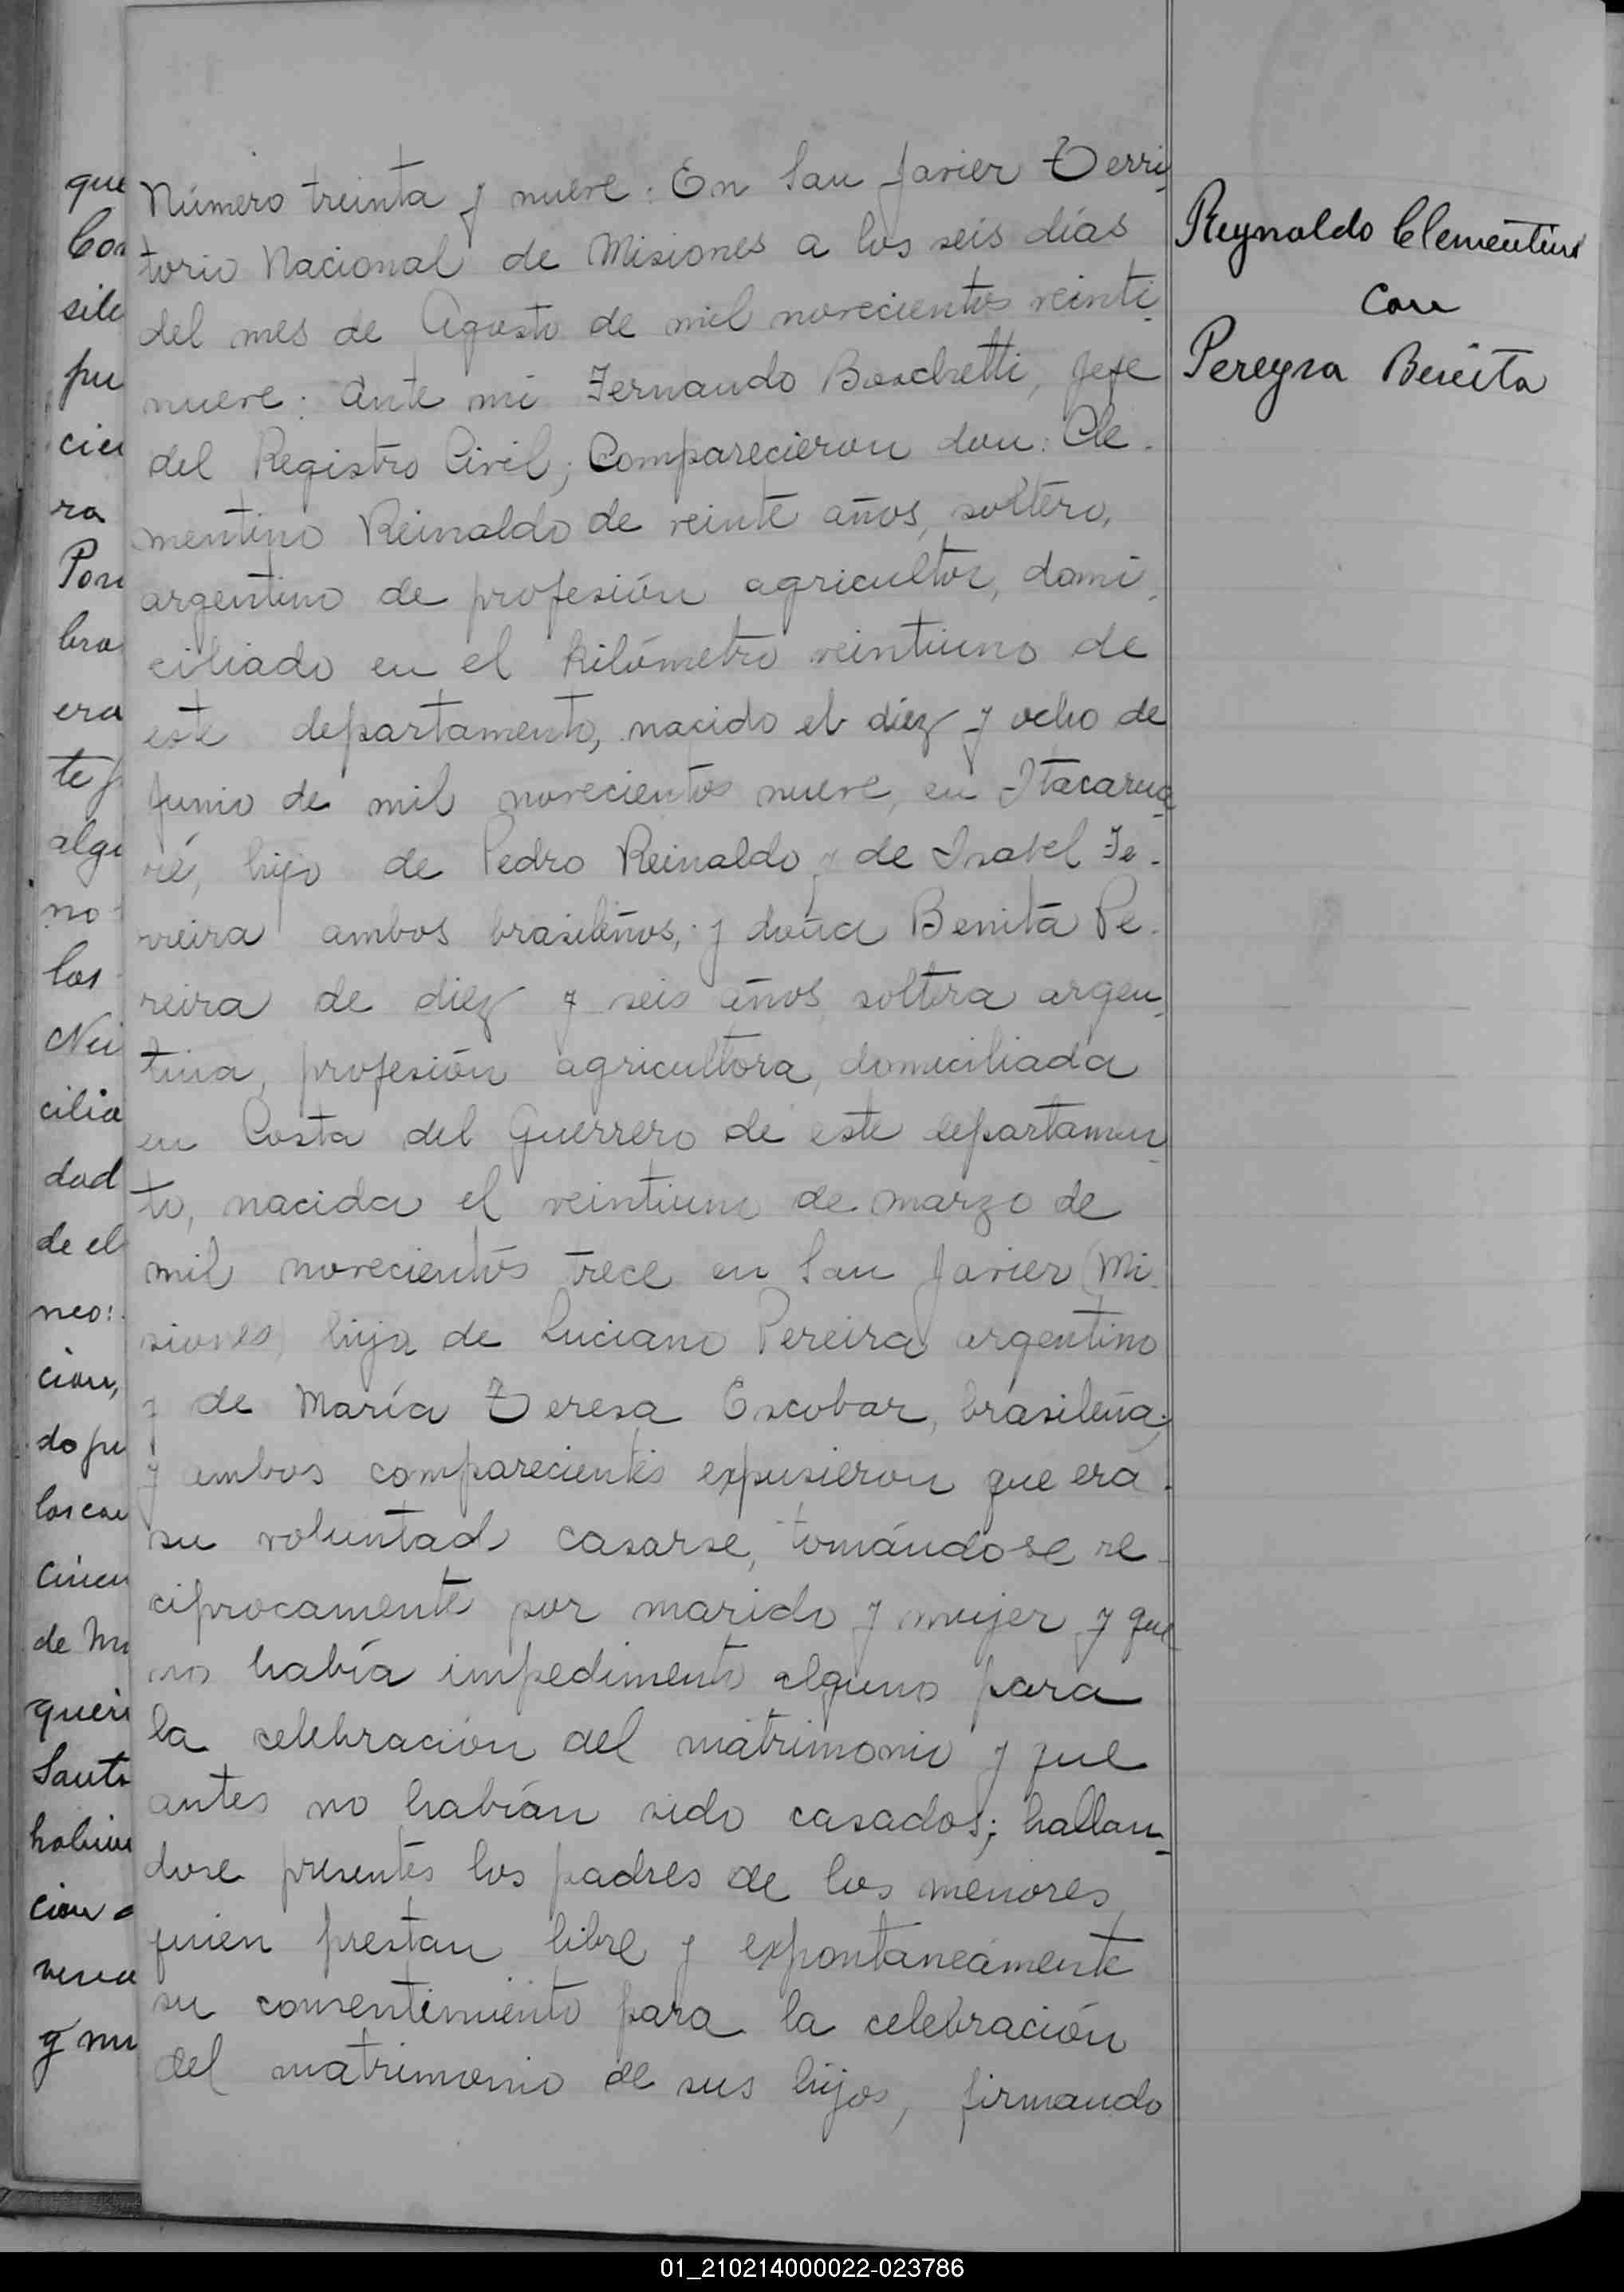 Número treinta y nueve: En San Javier Terri-
torio Nacional de Misiones a los seis días
del mes de Agosto de mil novecientos veinti-
nueve: Ante mi Fernando Boschetti, Jefe
del Registro Civil; Comparecieron don: Cle-
mentino Reinaldo de veinte años, soltero,
argentino de profesión agricultor, domi-
ciliado en el kilómetro veintiuno de
este departamento, nacido el diez y ocho de
Junio de mil novecientos nueve, en Itacarua-
ré, hijo de Pedro Reinaldo y de Isabel Fe-
rreira ambos brasileños, y doña Benita Pe-
reira de diez y seis años, soltera argen-
tina, profesión agricultora, domiciliada
en Costa del Guerrero de este departamen-
to, nacida el veintiuno de marzo de
mil novecientos trece en San Javier (Mi-
siones) hija de Luciano Pereira argentino
y de María Teresa Escobar, brasileña;
y ambos comparecientes expusieron que era
su voluntad casarse, tomándose re-
ciprocamente por marido y mujer y que
no había impedimento alguno para
la celebración del matrimonio y que
antes no habían sido casados; hallan-
dose presentes los padres de los menores,
quien prestan libre y expontaneamente
su consentimiento para la celebración
del matrimonio de sus hijos, firmando
Reynaldo Clementino
con
Pereyra Benita
que
sile
pu
cien
ra
bra
era
te y
algu
no
los
cilia
dad
de el
neo:
cion,
do pu
los cau
queri
Santo
cion
y nu
01_210214000022-023786